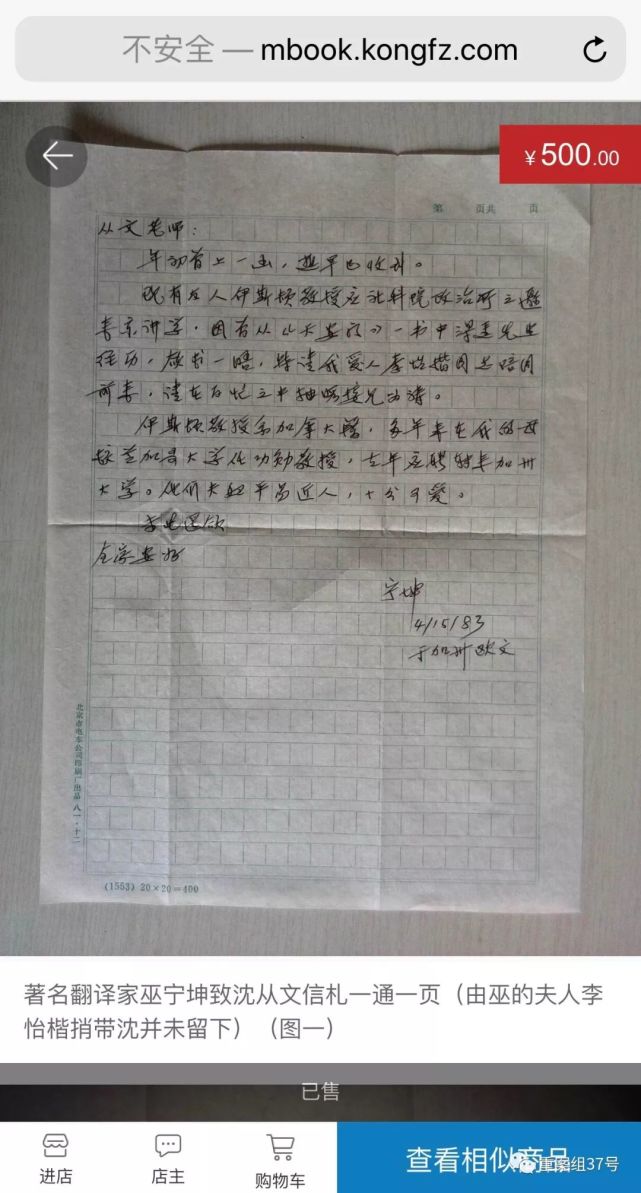 不安全 — mbook.kongfz.com
¥500.00
第 页共 页
从文老师：
年初首上一函，想早已收到。
现有友人伊斯顿教授应社科院政治所之邀
来京讲学，因有从《大安的》一书中得悉先生
经历，欲求一晤，特请我爱人李怡楷同志陪同
前来，请在百忙之中抽暇接见为祷。
伊斯顿教授系加拿大籍，多年来在我的母
校芝加哥大学任功勋教授，去年应聘转来加州
大学。他们夫妇平易近人，十分可爱。
专此 颂
全家安好
宁坤
4/15/83
于加州欧文
北京市电车公司印刷厂出品 八一·十二
(1553) 20×20=400
著名翻译家巫宁坤致沈从文信札一通一页（由巫的夫人李
怡楷捎带沈并未留下）（图一）
已售
进店
店主
购物车
查看相似商品
重案组37号